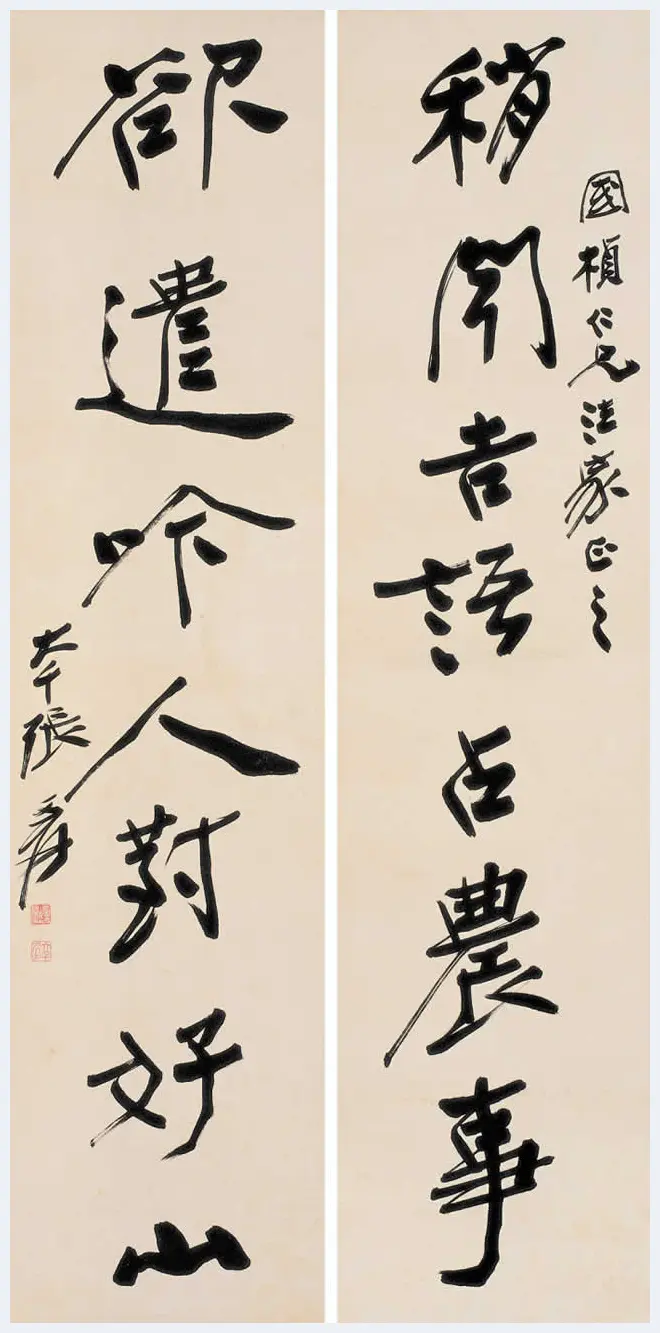 國楨仁兄法家正之
稍聞吉語占農事
卻遣吟人對好山
大千張爰